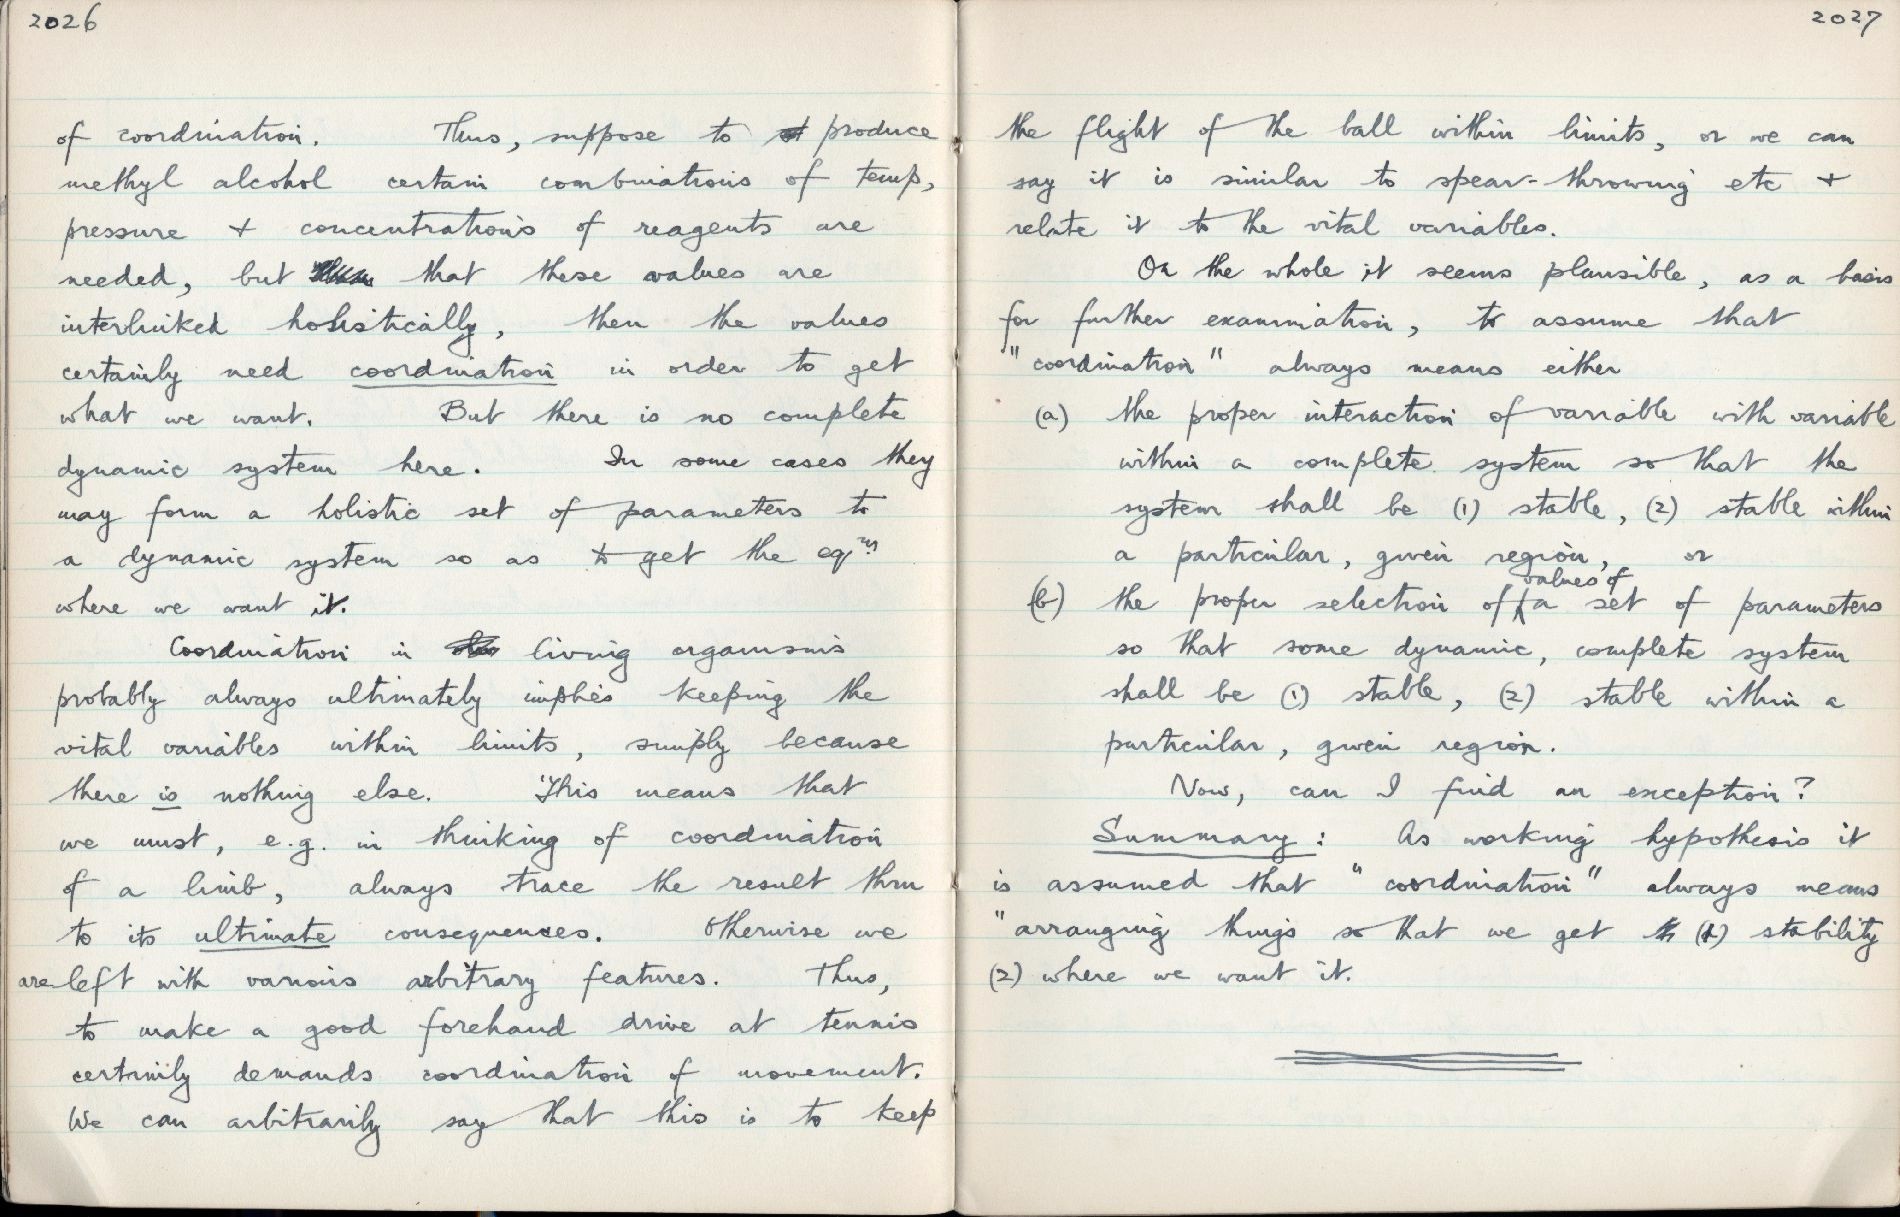 2026
of coordination. Thus, suppose to produce
methyl alcohol certain combinations of temp,
pressure + concentrations of reagents are
needed, but that these values are
interlinked holistically, then the values
certainly need coordination in order to get
what we want. But there is no complete
dynamic system here. In some cases they
may form a holistic set of parameters to
a dynamic system so as to get the eqm
where we want it.
Coordination in living organisms
probably always ultimately implies keeping the
vital variables within limits, simply because
there is nothing else. This means that
we must, e.g. in thinking of coordination
of a limb, always trace the result thru
to its ultimate consequences. Otherwise we
are left with various arbitrary features. Thus,
to make a good forehand drive at tennis
certainly demands coordination of movement.
We can arbitrarily say that this is to keep
2027
the flight of the ball within limits, or we can
say it is similar to spear-throwing etc +
relate it to the vital variables.
On the whole it seems plausible, as a basis
for further examination, to assume that
"coordination" always means either
(a) the proper interaction of variable with variable
within a complete system so that the
system shall be (1) stable, (2) stable within
a particular, given region, or
values of
(b) the proper selection of a set of parameters
so that some dynamic, complete system
shall be (1) stable, (2) stable within a
particular, given region.
Now, can I find an exception?
Summary: As working hypothesis it
is assumed that "coordination" always means
"arranging things so that we get (1) stability
(2) where we want it.